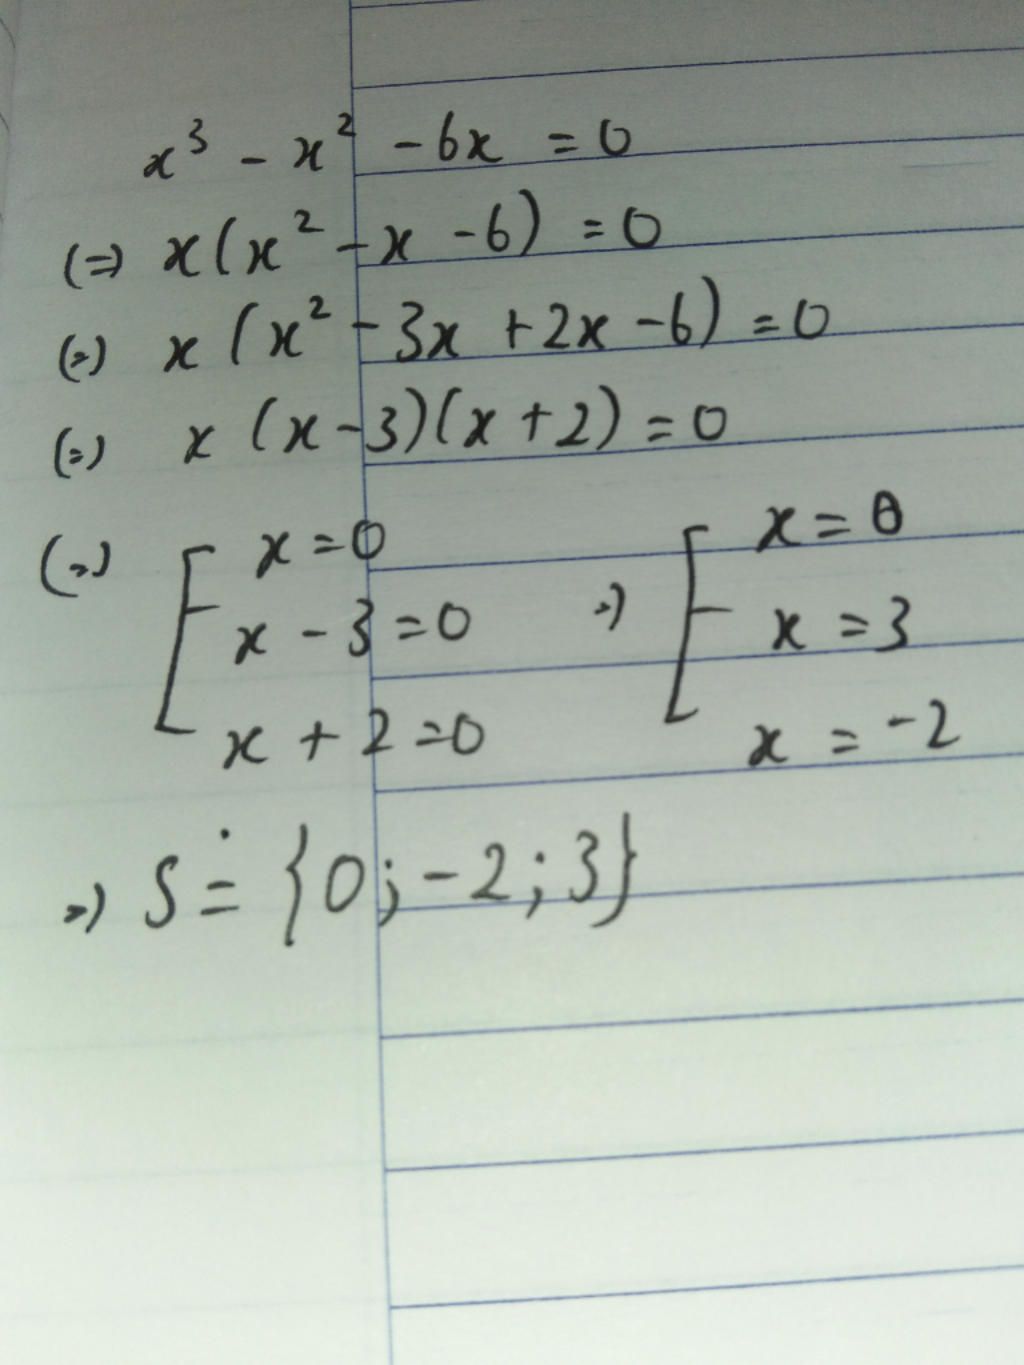 x³ - x² - 6x = 0
(=) x(x² - x - 6) = 0
(=) x(x² - 3x + 2x - 6) = 0
(=) x(x - 3)(x + 2) = 0
(=) [ x = 0 =) [ x = 0
x - 3 = 0 x = 3
x + 2 = 0 x = -2
=) S = {0; -2; 3}